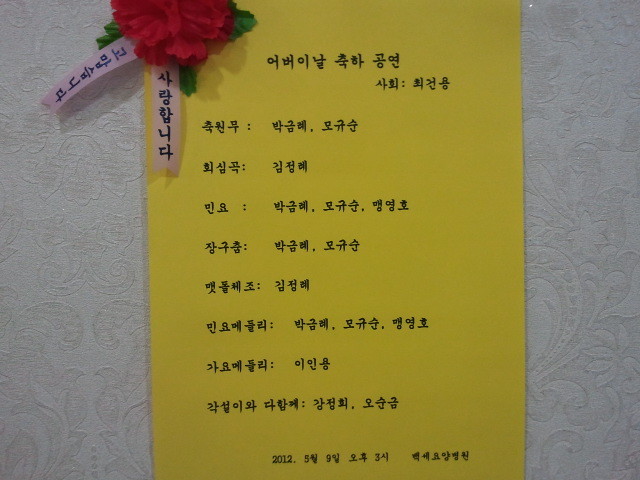 고맙습니다
사랑합니다
어버이날 축하 공연
사회: 최건용
축원무 : 박금례, 모규순
회심곡: 김정례
민요 : 박금례, 모규순, 맹영호
장구춤: 박금례, 모규순
맷돌체조: 김정례
민요메들리: 박금례, 모규순, 맹영호
가요메들리: 이인용
각설이와 다함께: 강정희, 오순금
2012. 5월 9일 오후 3시 백세요양병원